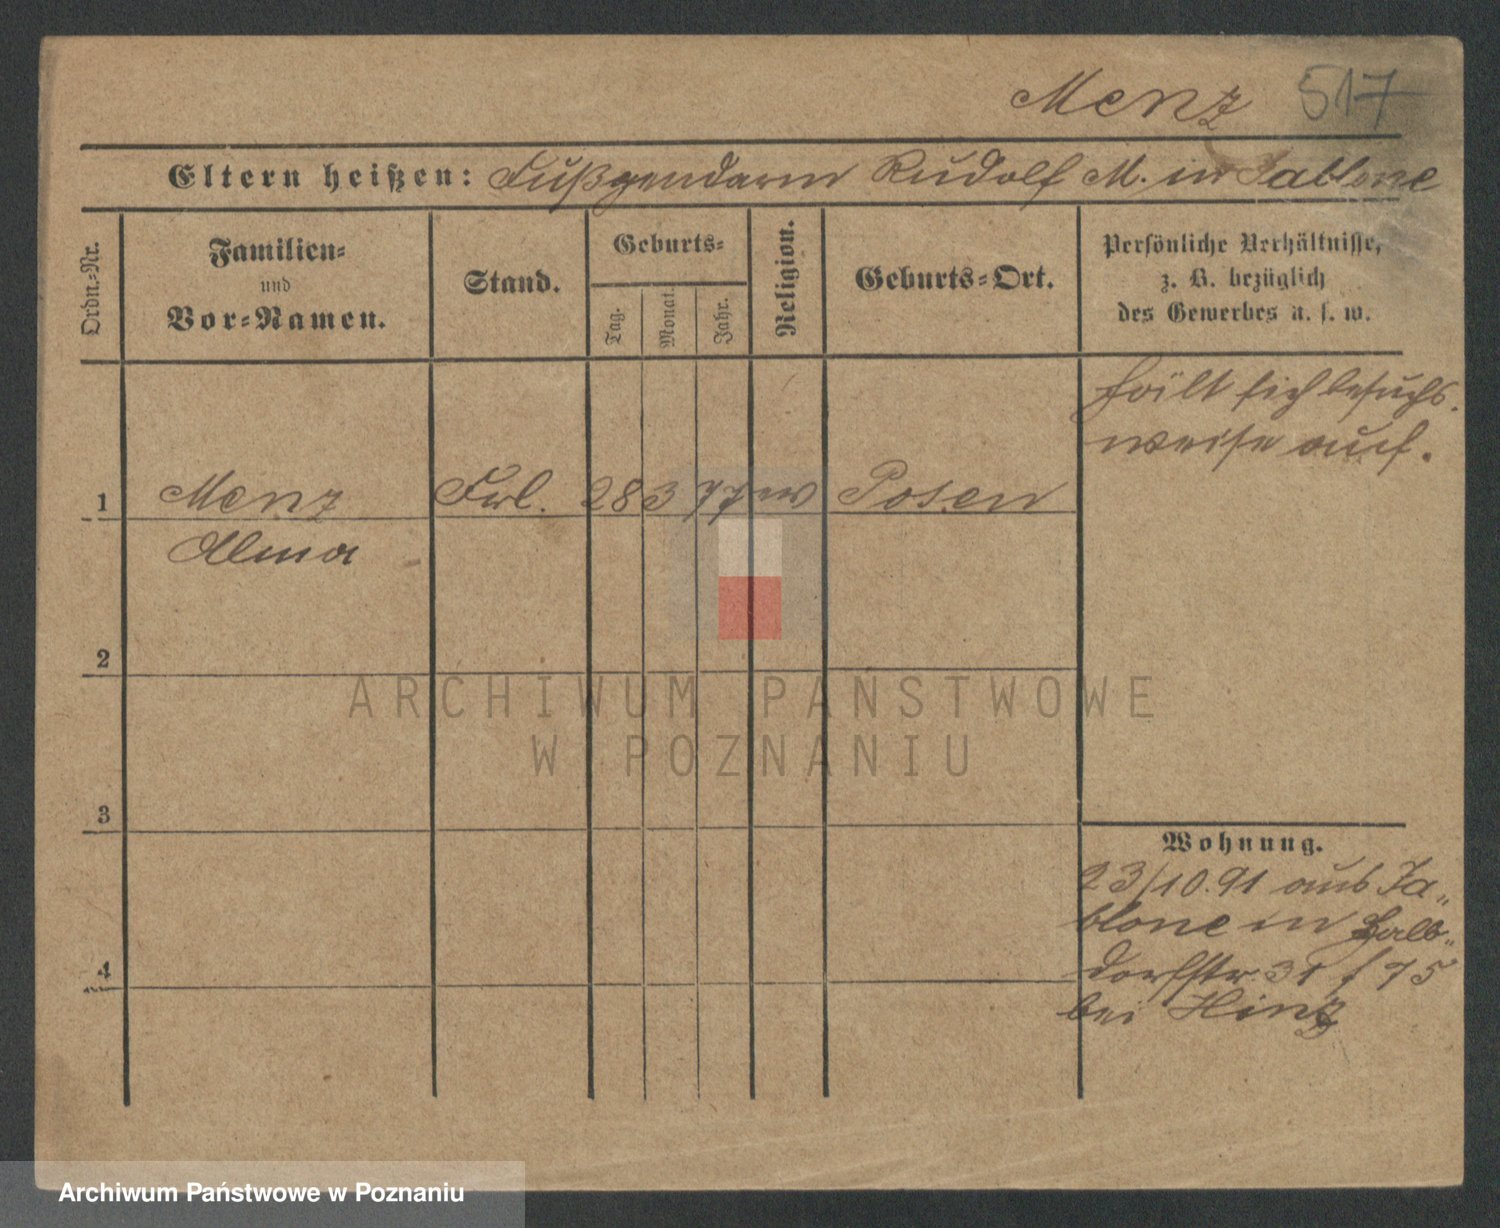 Menz 517
Eltern heißen: Fußgendarm Rudolf M. in Jablone
Ordn.-Nr.
Familien-
und
Vor-Namen.
Stand.
Geburts-
Tag.
Monat.
Jahr.
Religion.
Geburts-Ort.
Persönliche Verhältnisse,
z. B. bezüglich
des Gewerbes u. s. w.
hält sich besuchs-
weise auf.
1 Menz Frl. 28 3 77 ew Posen
Alma
2
3
4
Wohnung.
23/10.91 aus Ja-
blone in Halb-
dorfstr. 31 f 75
bei Hintz
ARCHIWUM PAŃSTWOWE
W POZNANIU
Archiwum Państwowe w Poznaniu